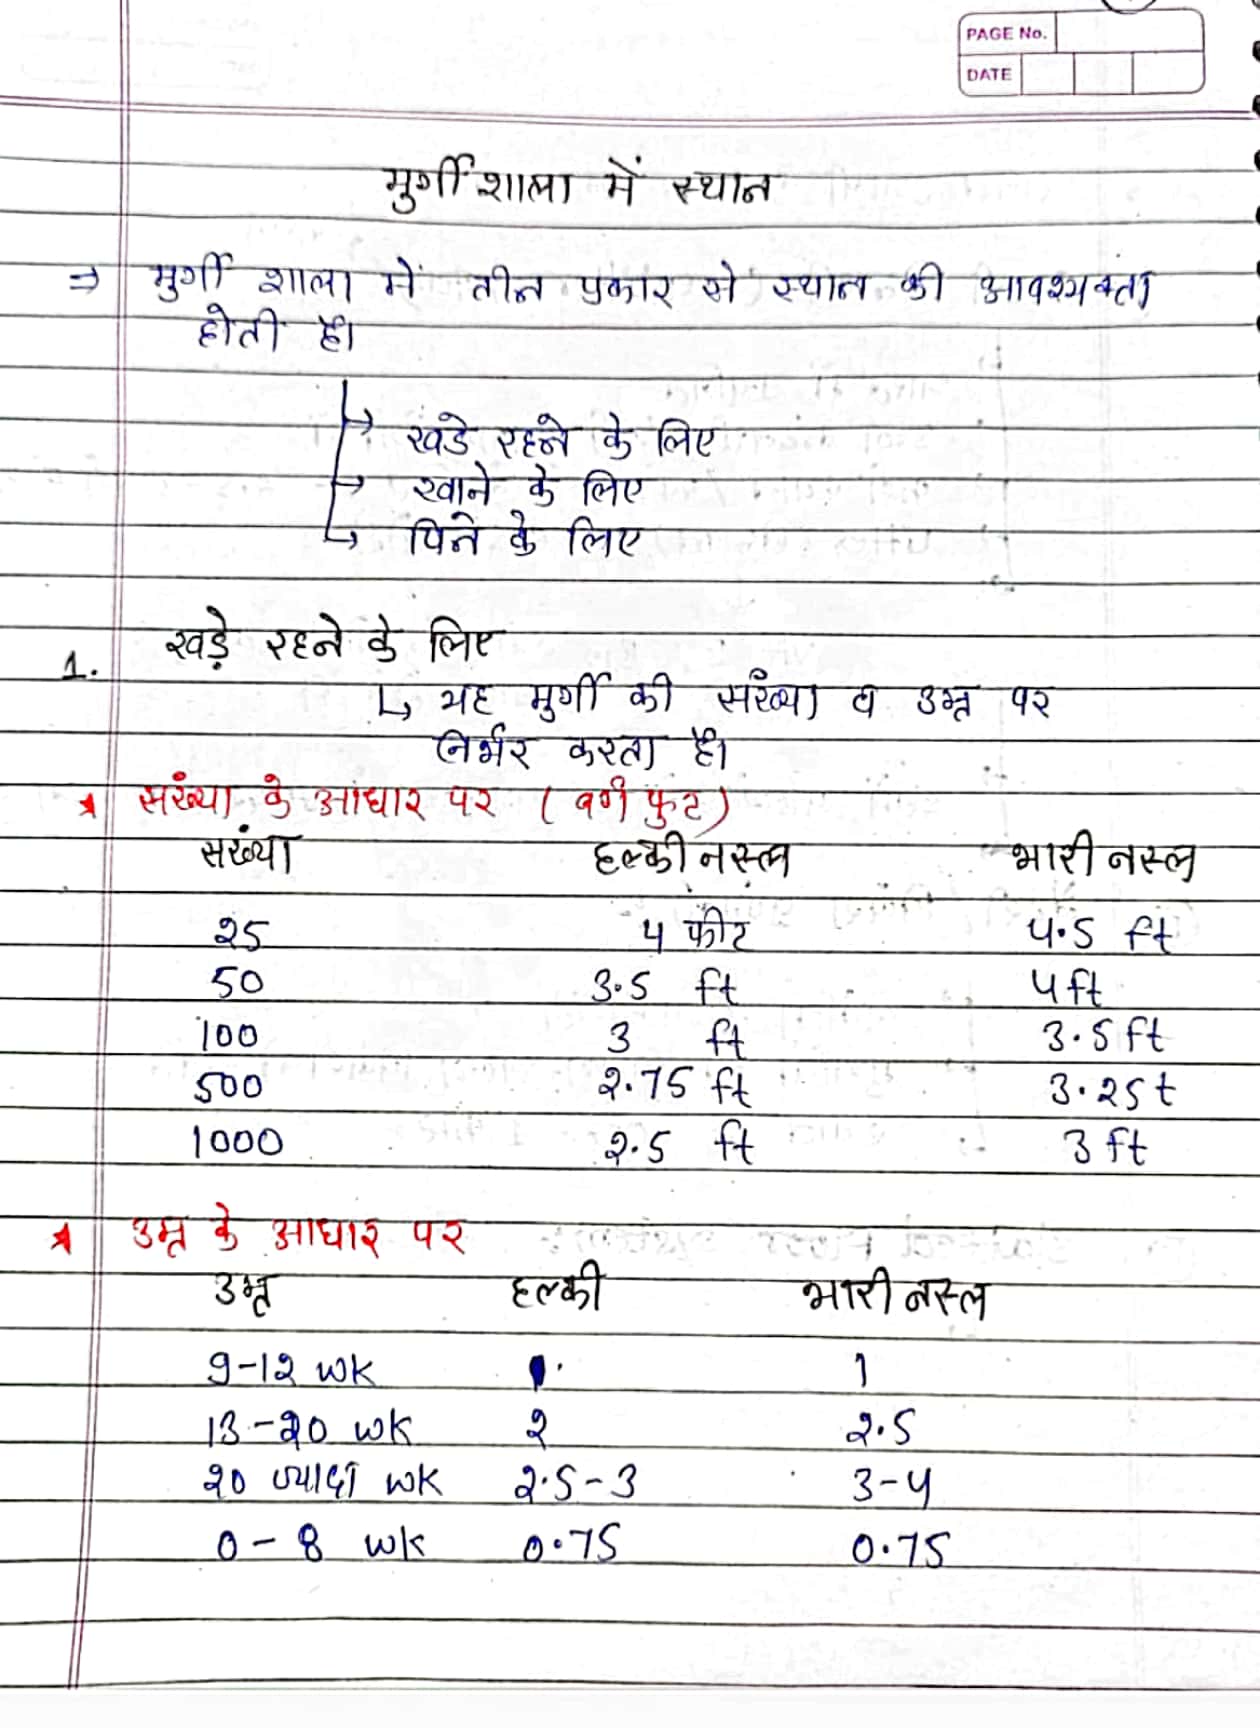 PAGE No.
DATE
मुर्गीशाला में स्थान
⇒ मुर्गी शाला में तीन प्रकार से स्थान की आवश्यक्ता
होती है।
↳ खडे रहने के लिए
↳ खाने के लिए
↳ पिने के लिए
1. खड़े रहने के लिए
↳ यह मुर्गी की संख्या व उम्र पर
निर्भर करता है।
★ संख्या के आधार पर (वर्ग फुट)
संख्या हल्की नस्ल भारी नस्ल
25 4 फीट 4.5 ft
50 3.5 ft 4 ft
100 3 ft 3.5 ft
500 2.75 ft 3.25 t
1000 2.5 ft 3 ft
★ उम्र के आधार पर
उम्र हल्की भारी नस्ल
9-12 wk 1
13-20 wk 2 2.5
20 ज्यादा wk 2.5-3 3-4
0-8 wk 0.75 0.75